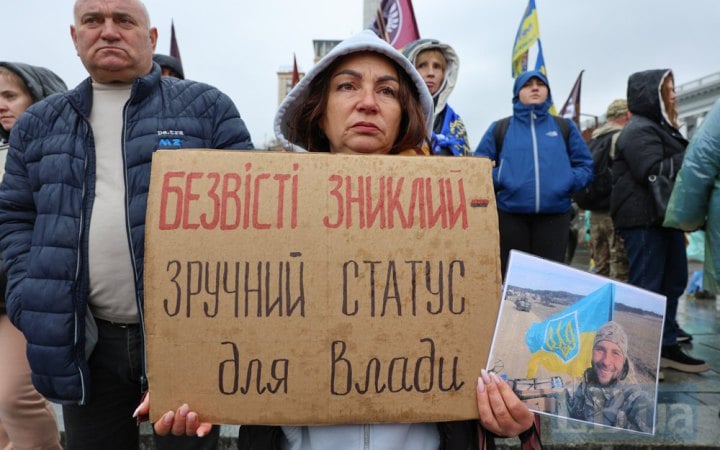 БЕЗВІСТІ ЗНИКЛИЙ-
ЗРУЧНИЙ СТАТУС
для Влади